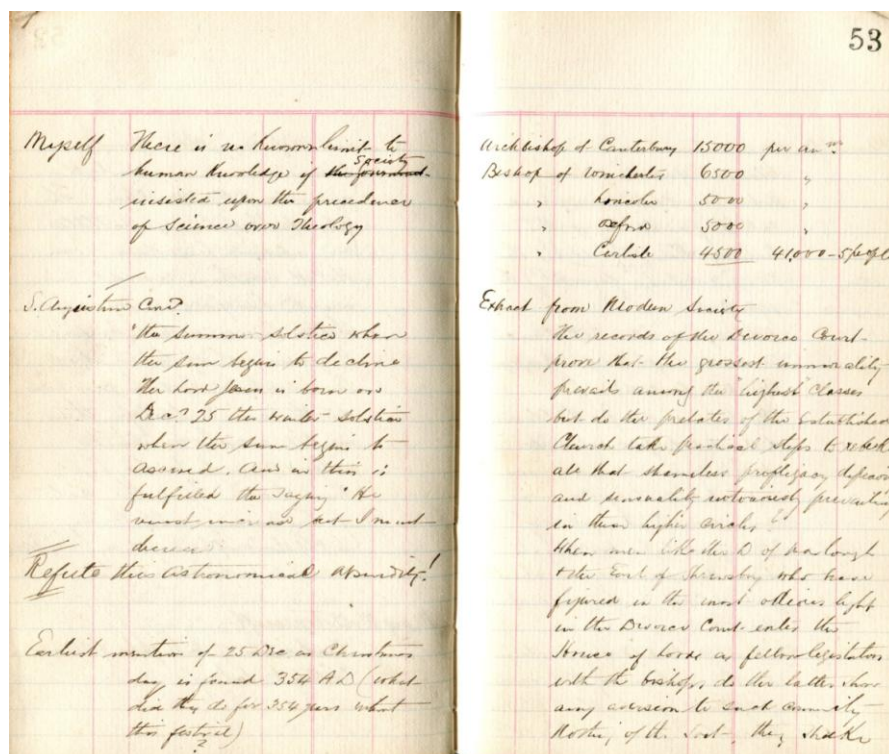 Myself There is no known limit to
human knowledge if Society
insisted upon the precedence
of Science over Theology
S. Augustine Cond.
"the summer solstice when
the sun begins to decline
the Lord Jesus is born on
Decr 25 the winter solstice
when the sun begins to
ascend. and in this is
fulfilled the saying "He
must increase but I must
decrease
Refute this astronomical absurdity!
Earliest mention of 25 Dec as Christmas
day is found 354 A D (what
did they do for 354 years what
this festival)
?
53
Archbishop of Canterbury 15000 per anm.
Bishop of Winchester 6500 "
" Lincoln 5000 "
" Oxford 5000 "
" Carlisle 4500 41,000 - 5 people
Extract from Modern Society
The records of the Divorce Court
prove that the grossest immorality
prevails among the "highest" classes
but do the prelates of the Established
Church take practical steps to check
all that shameless profligacy
and sensuality notoriously prevailing
in these higher circles?
When men like the D of Marlough
& the Earl of Shrewsby who have
figured in the most odious light
in the Divorce Court enter the
House of Lords as fellow legislators
with the bishops, do the latter show
any aversion to such
Nothing of the sort, they shake